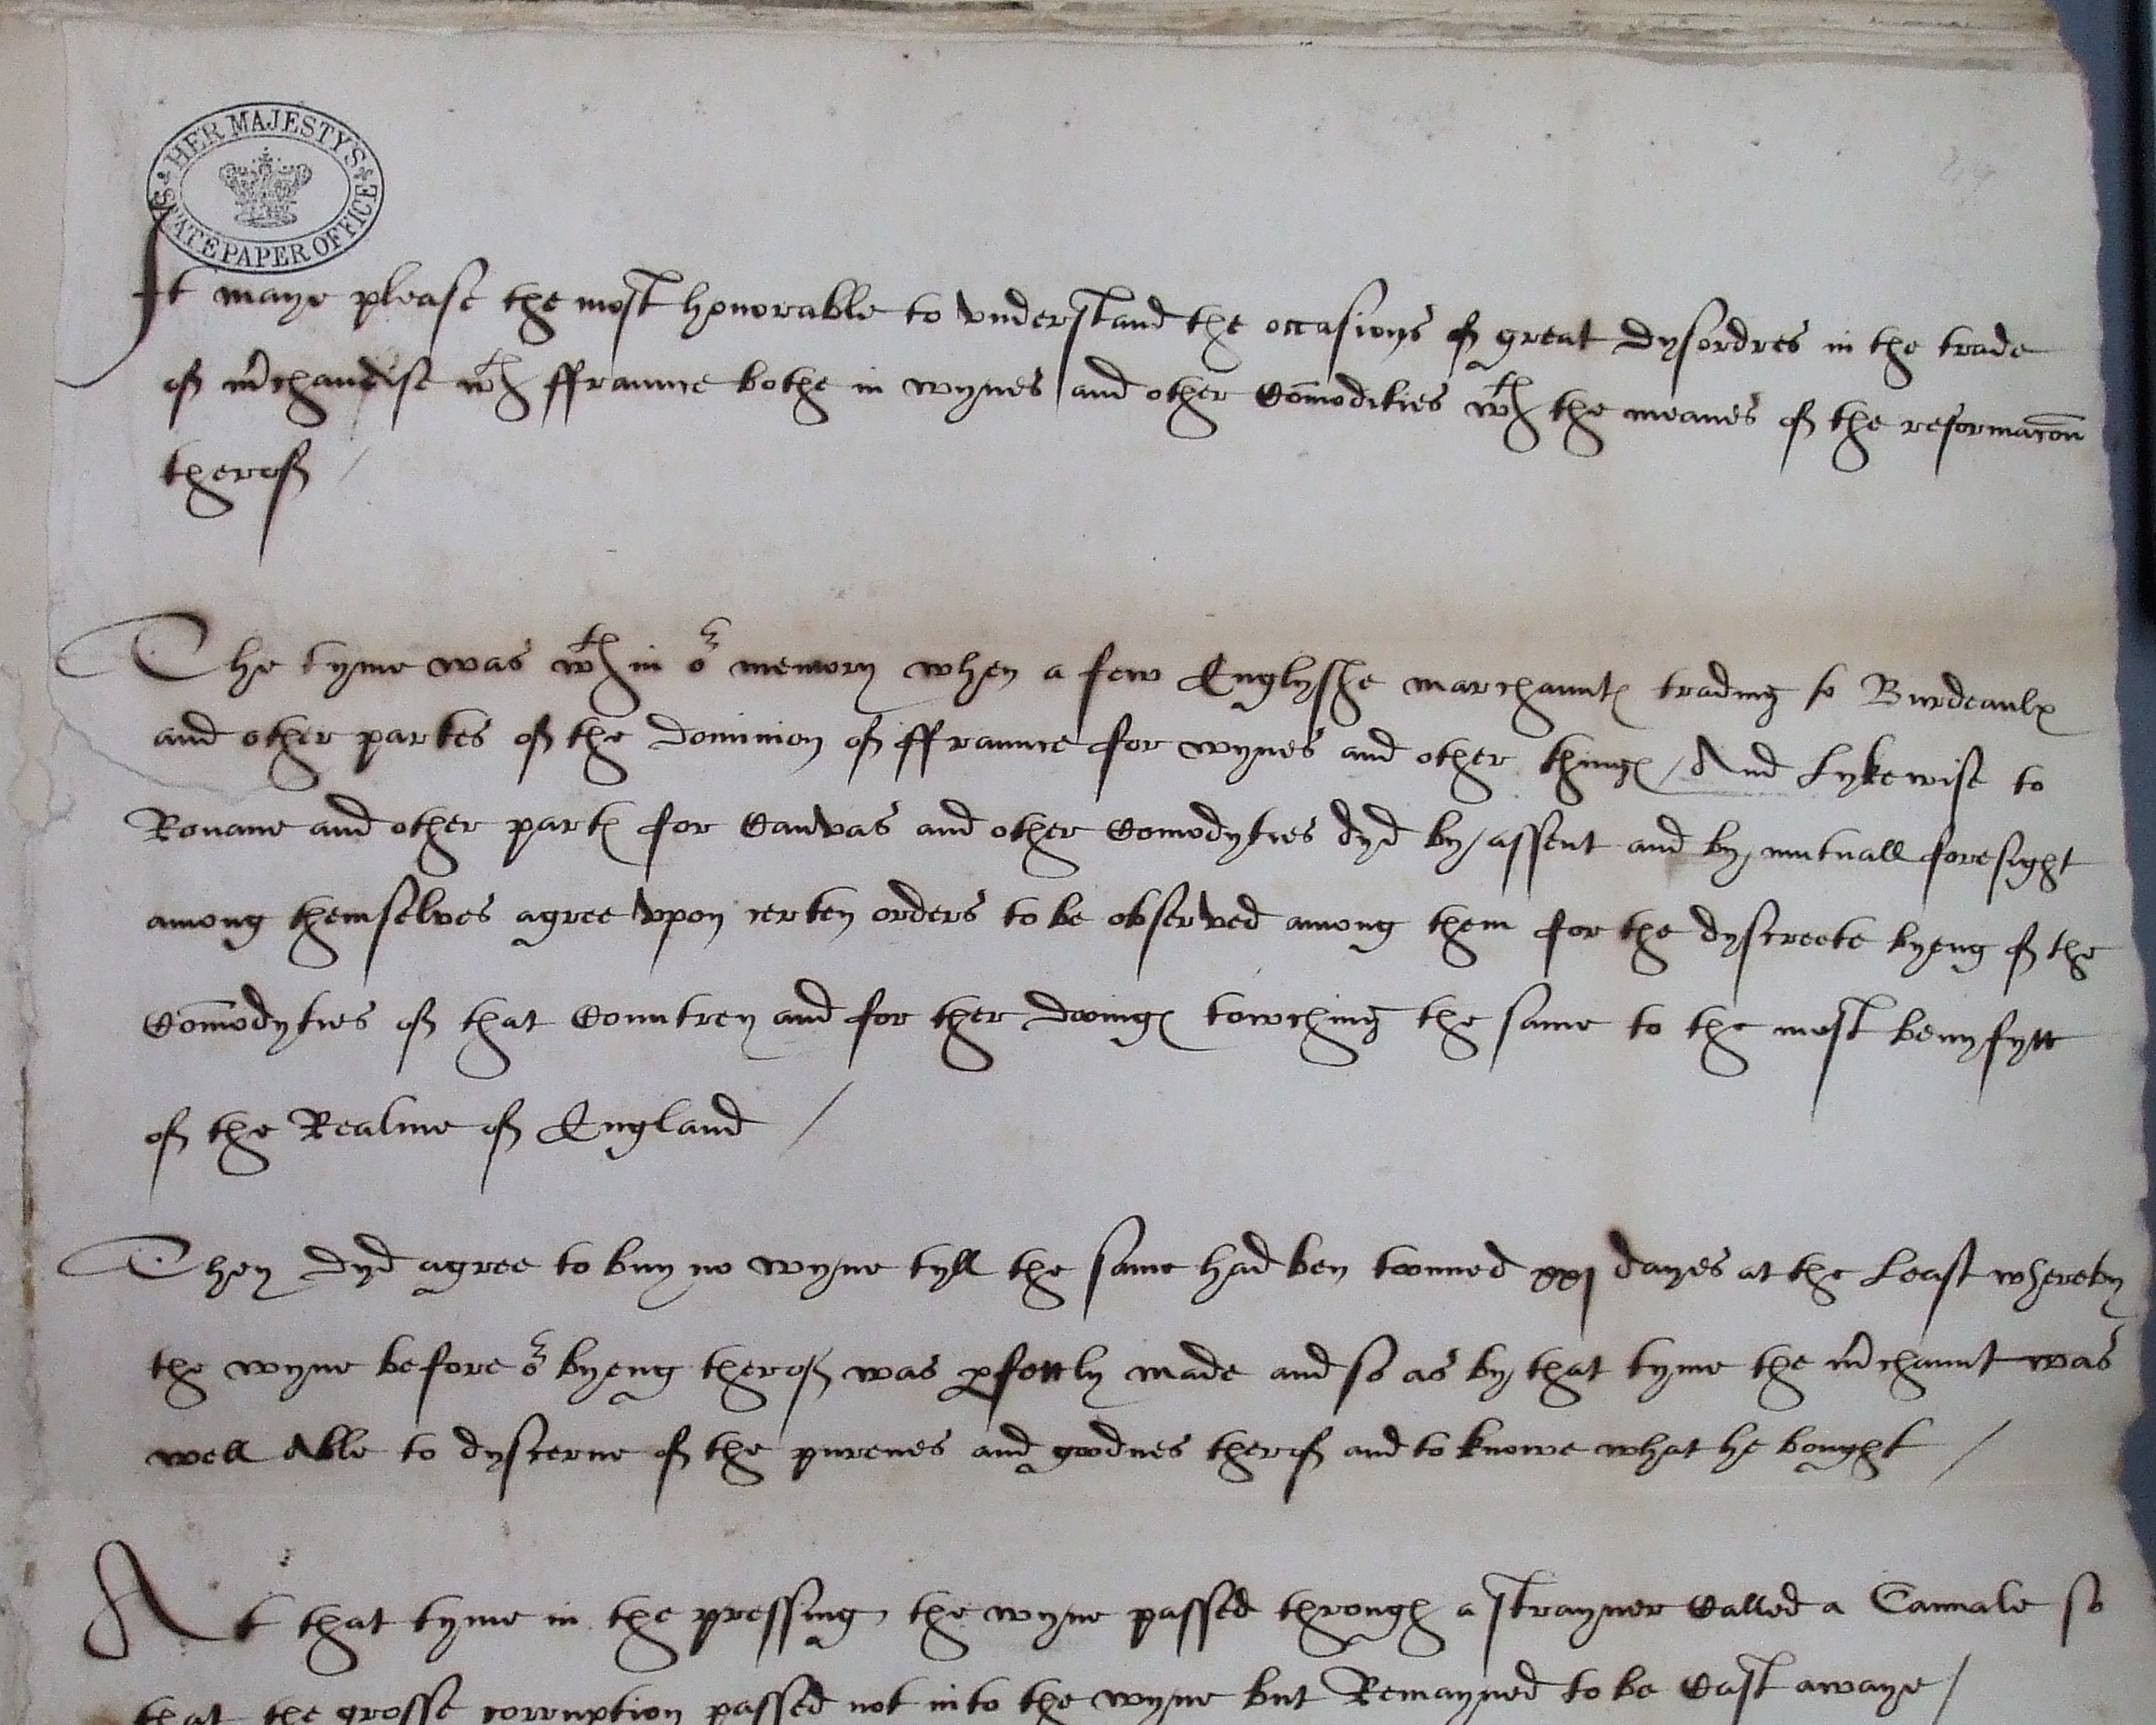 HER MAJESTY'S
STATE PAPER OFFICE
It maye please the most honorable to vnderstand the occasions of great dysordres in the trade
of m̃chandise wth ffraunce bothe in wynes and other Com̃odities wth the meanes of the reformac̃on
therof /
The tyme was wth in or memory when a few Englyshe marchauntes trading to Burdeaulx
and other partes of the dominion of ffraunce for wynes and other thinges / And Lykewise to
Rouane and other partes for Canvas and other Comodyties dyd by assent and by mutuall foresight
among themselves agree vpon certen orders to be observed among them for the dyscreete byeng of the
Com̃odyties of that Countrey and for ther dooinges towching the same to the most benyfytt
of the Realme of England /
They dyd agree to buy no wyne tyll the same had ben toonned xxj dayes at the Least whereby
the wyne before or byeng therof was ꝑfettly made and so as by that tyme the m̃chaunt was
well Able to dyscerne of the purenes and goodnes therof and to knowe what he bought /
At that tyme in the pressing the wyne passed through a strayner Called a Cannale so
that the grosse corruption passed not into the wyne but Remayned to be Cast awaye /